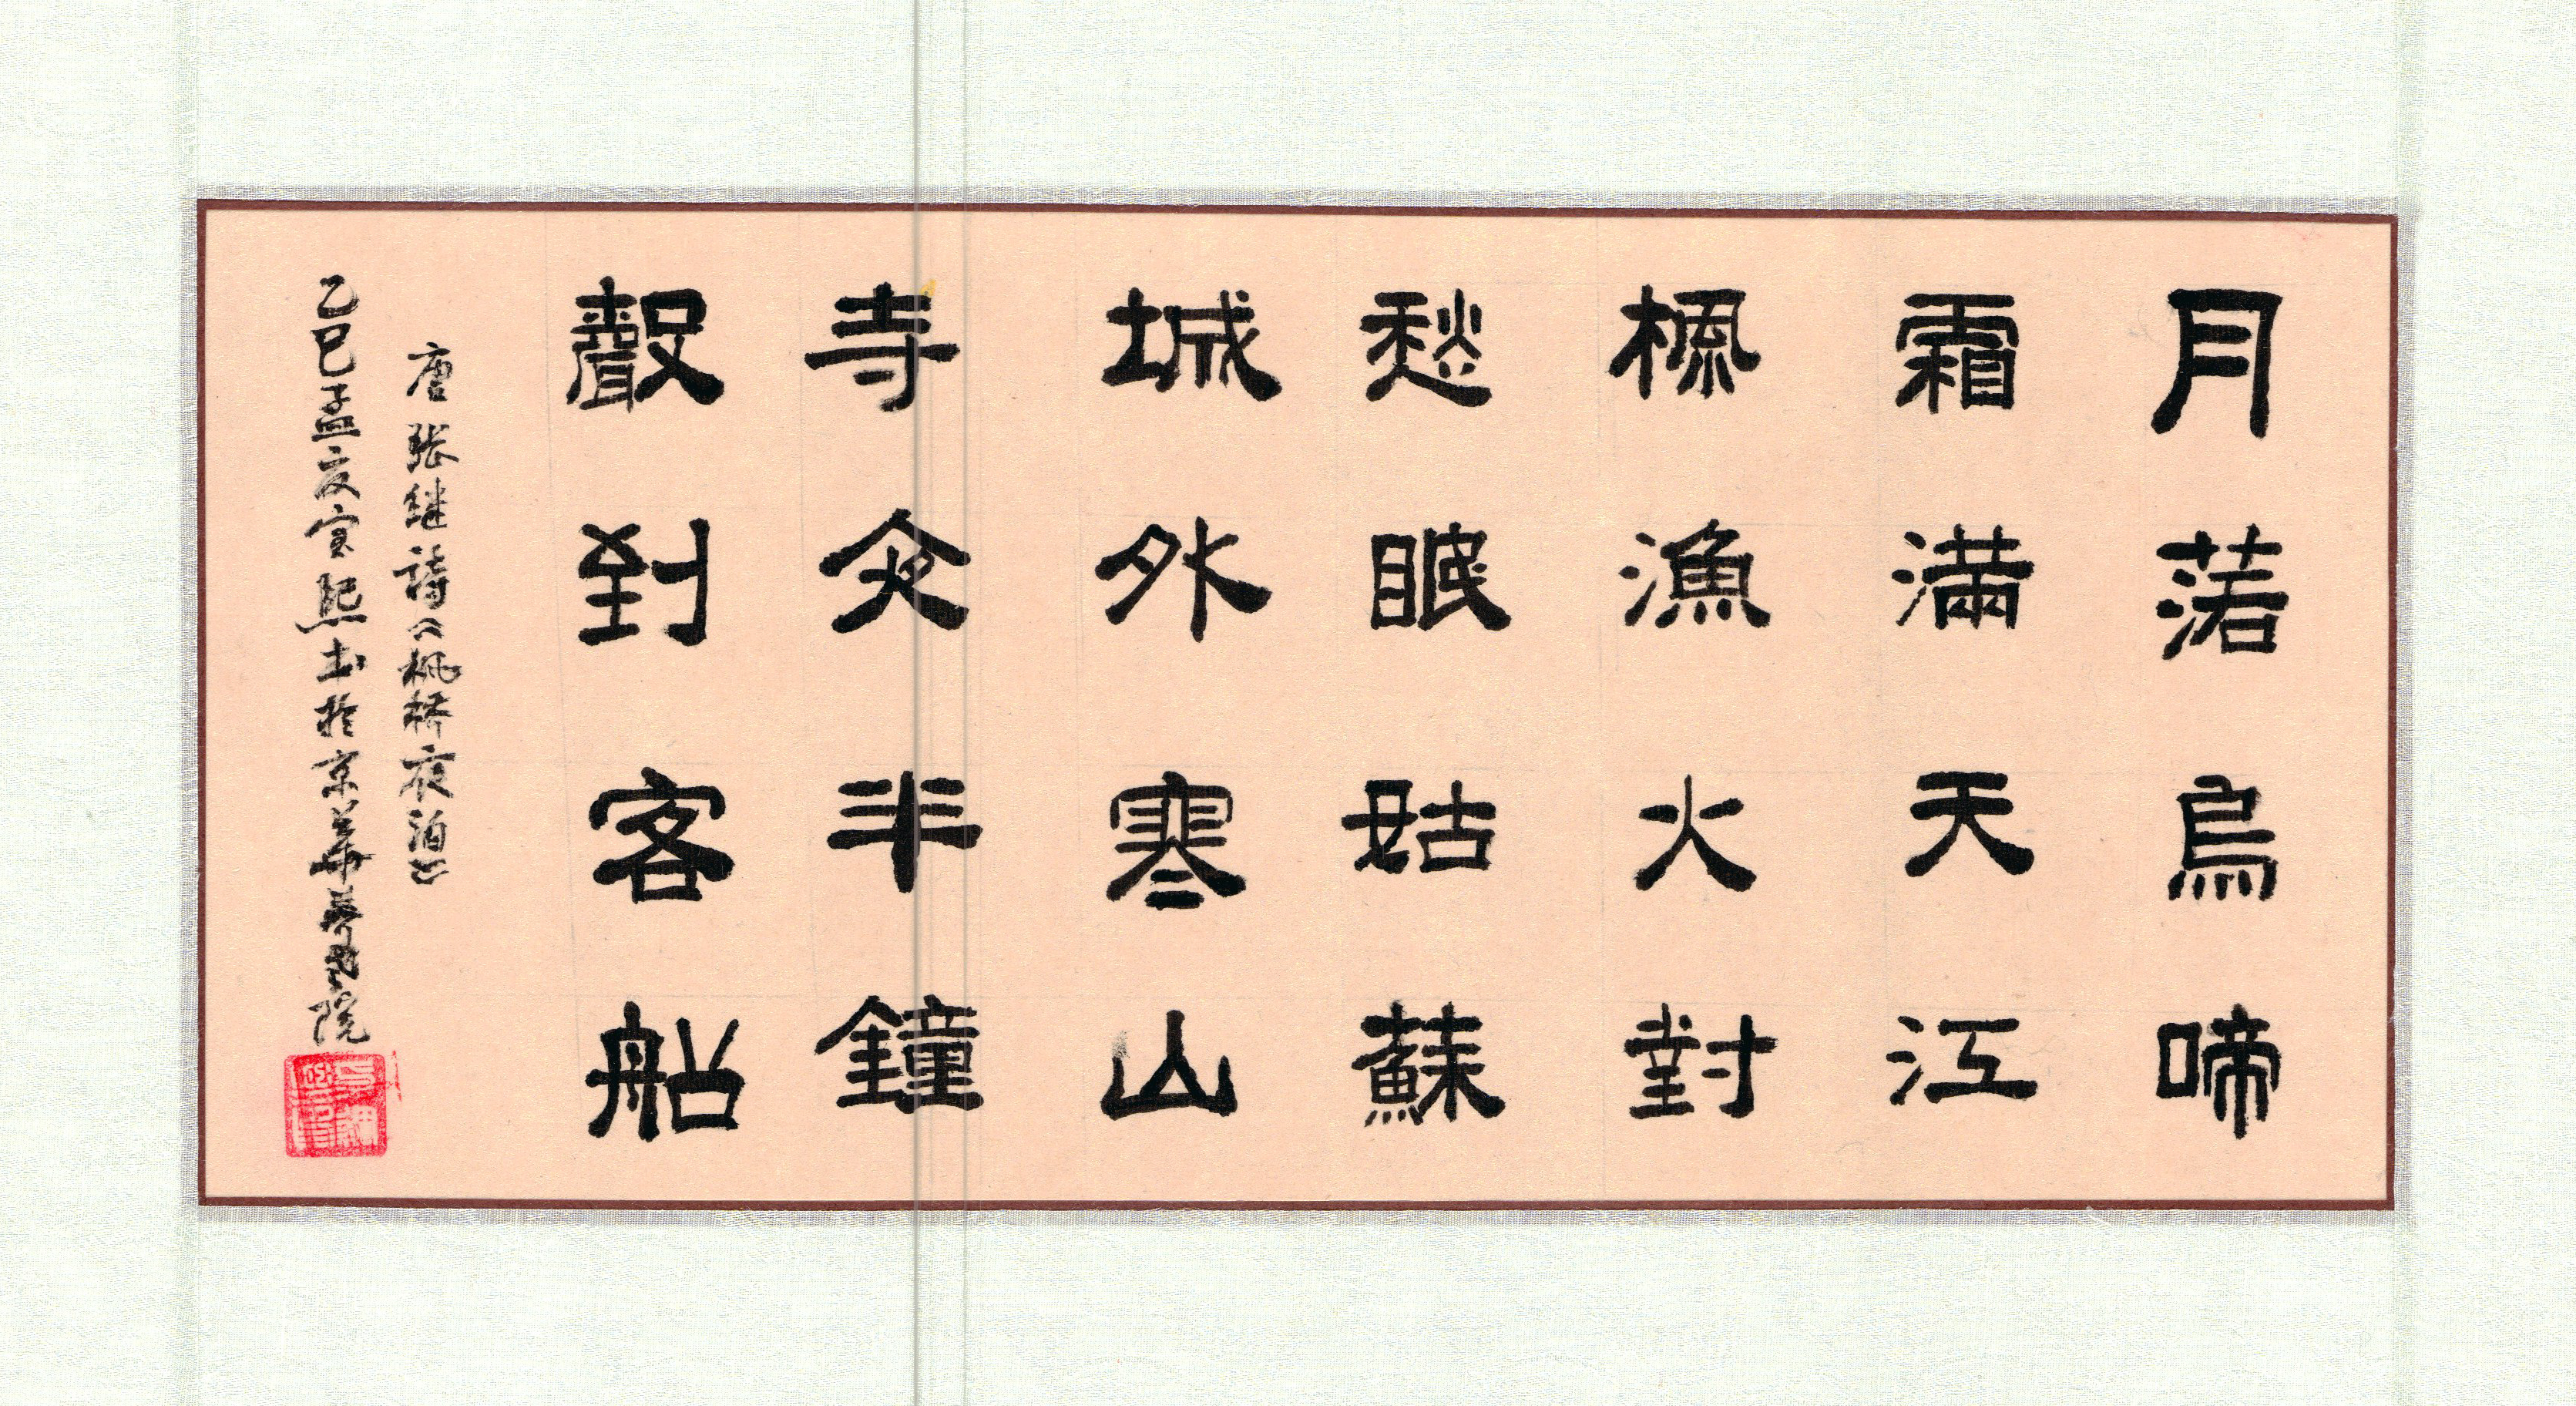 月落烏啼
霜滿天江
楓漁火對
愁眠姑蘇
城外寒山
寺夜半鐘
聲到客船
唐张继詩《枫桥夜泊》
乙巳孟夏寅熙书於京華院